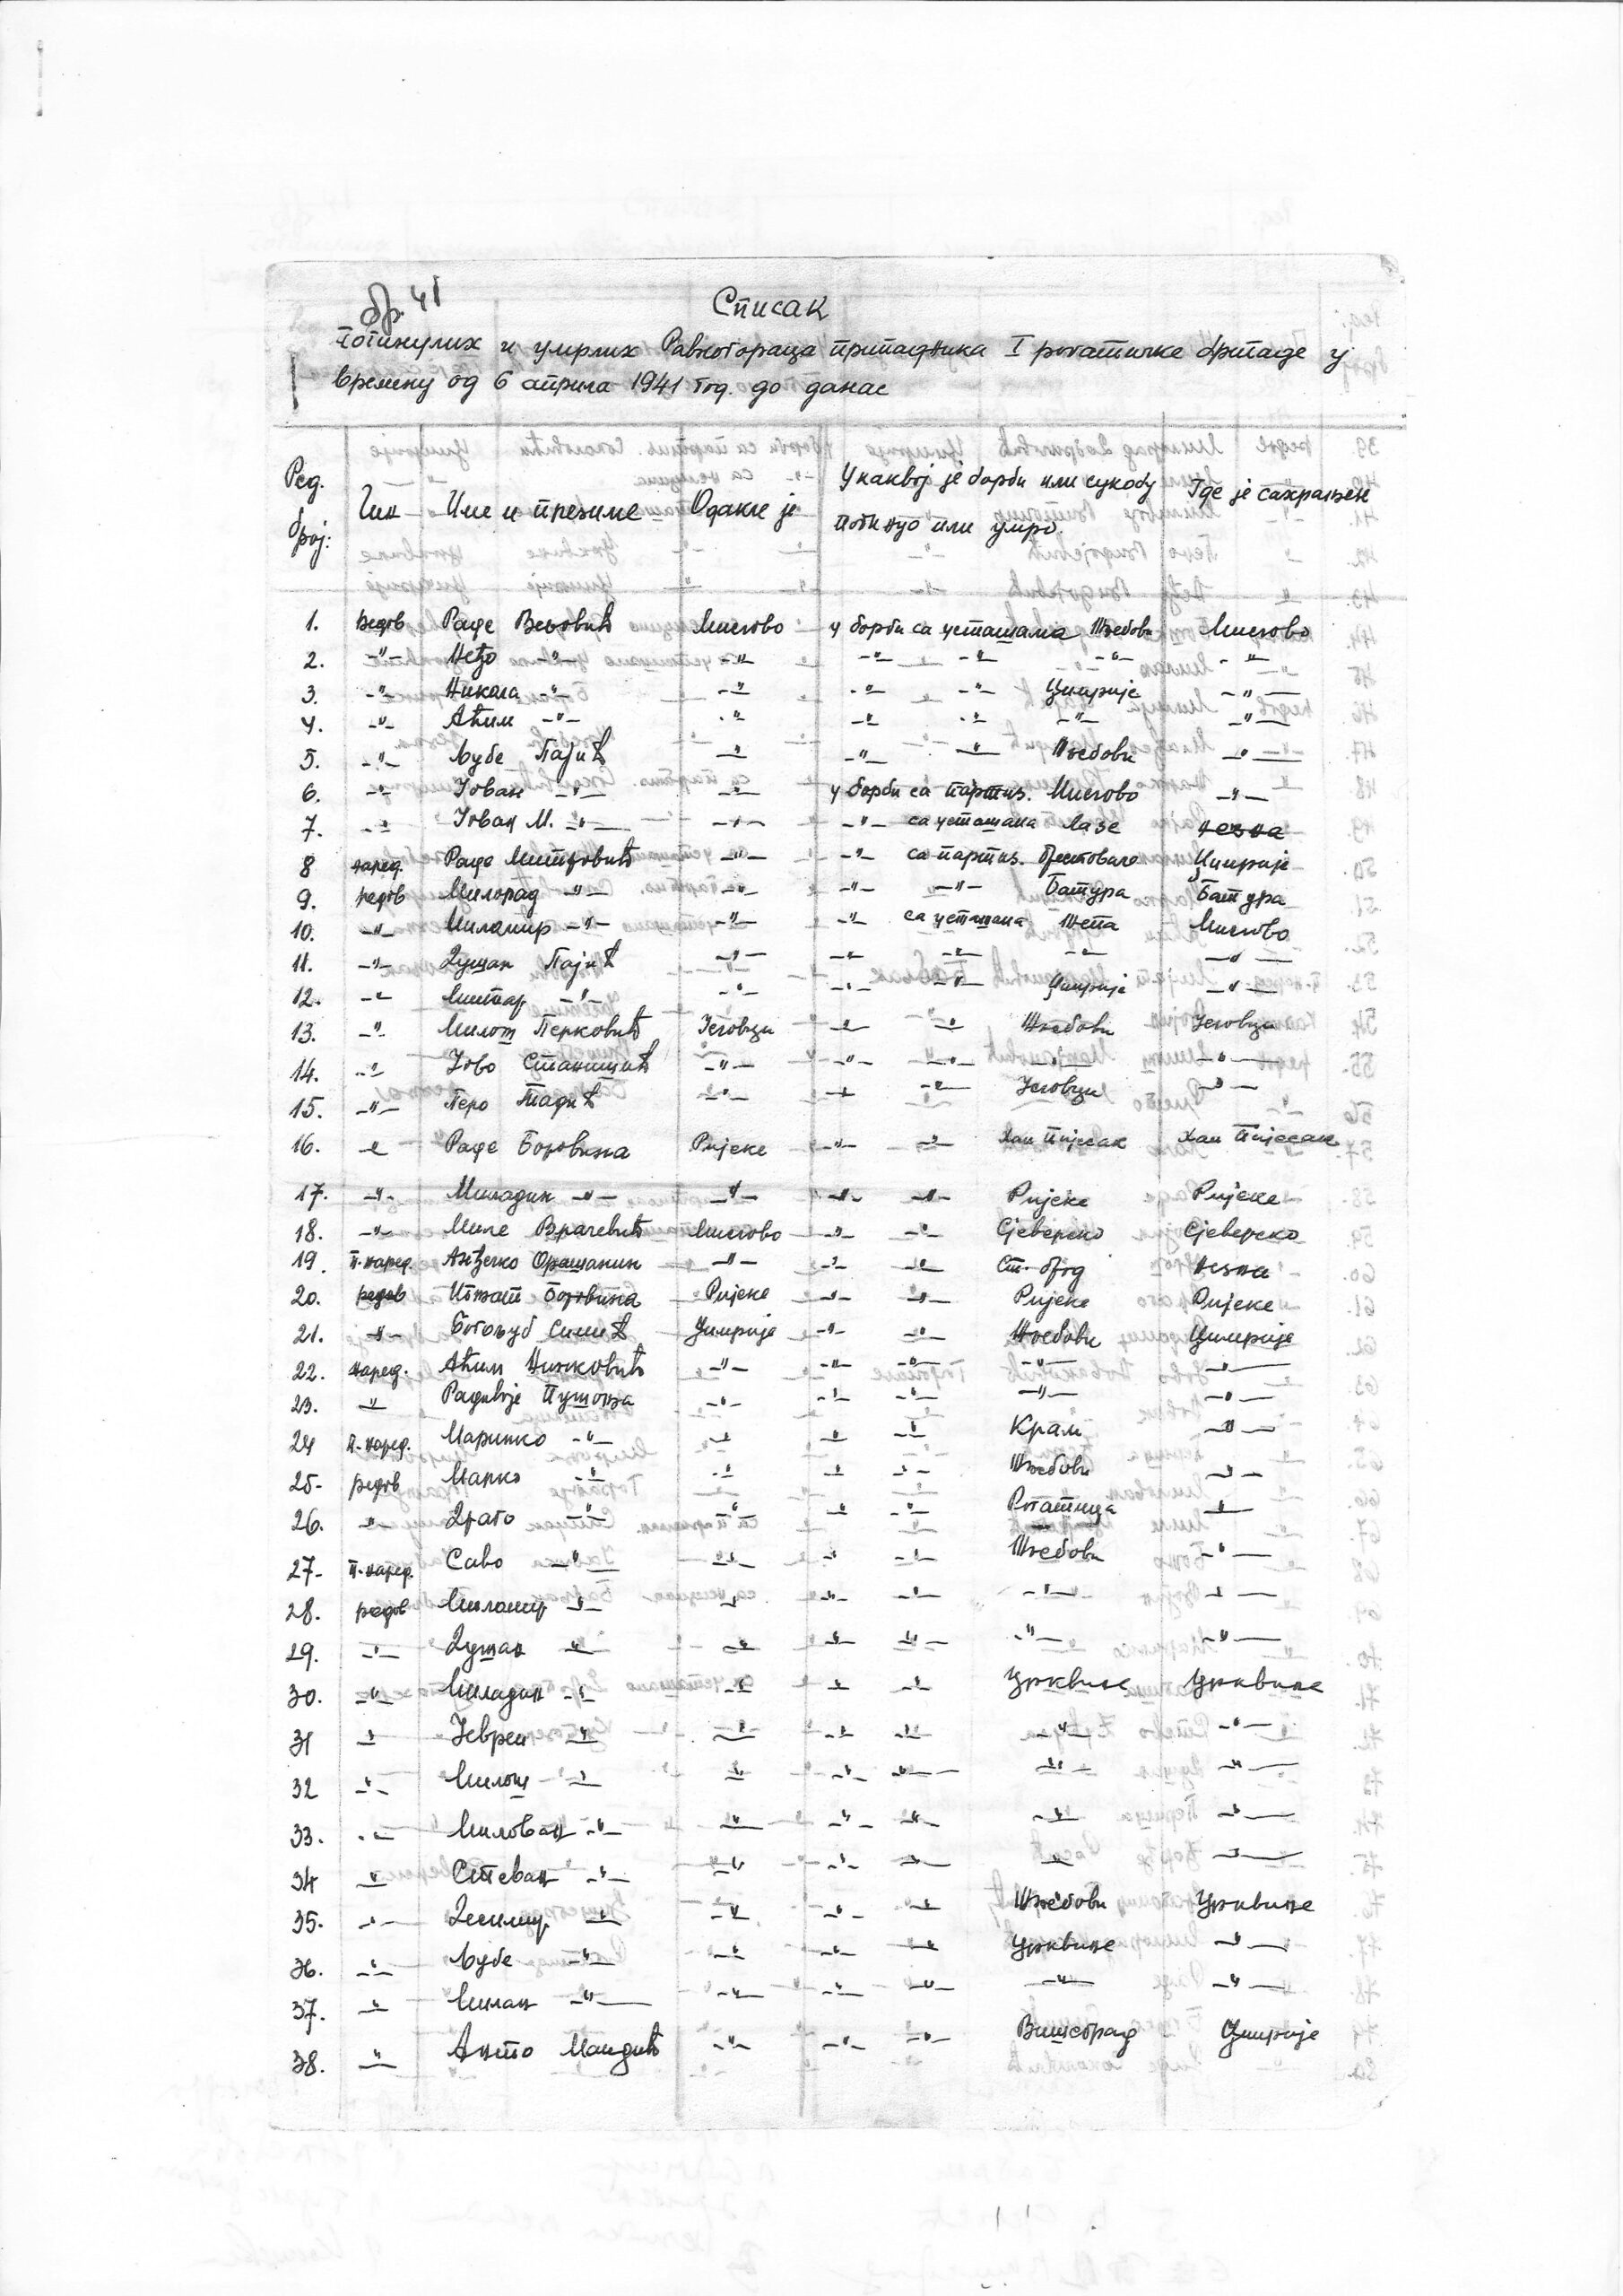 бр. 41
Списак
погинулих и умрлих Равногораца припадника I рогатичке бригаде у
времену од 6 априла 1941 год. до данас
Ред. број: Чин Име и презиме Одакле је У каквој је борби или сукобу погинуо или умро. Где је сахрањен
1. редов Раде Мислово у борби са усташама Мислово
2. -"- Неђо -"- -"- -"- -"- -"- -"-
3. -"- Никола -"- -"- -"- -"- Џимрије -"-
4. -"- Аћим -"- -"- -"- -"- -"- -"-
5. -"- Љубе Пајић -"- -"- -"- Његови -"-
6. -"- Јован -"- -"- у борби са партиз. Мислово -"-
7. -"- Јован М. -"- -"- -"- са усташама Лазе незна
8 наред. Раде Митровић -"- -"- са партиз. Џимрије
9. редов Милорад -"- -"- -"- -"- Батура Батура
10. -"- Миломир -"- -"- -"- са усташама Жепа Мислово
11. -"- Душан Пајић -"- -"- -"- -"- -"-
12. -"- Митар -"- -"- -"- -"- Џимрије -"-
13. -"- Милош Перковић Јеловци -"- -"- Јеловци
14. -"- Јово Станишић -"- -"- -"- -"- -"-
15. -"- Перо Тадић -"- -"- -"- Јеловци -"-
16. -"- Раде Боровина Ријеке -"- -"- Хан Пијесак Хан Пијесак
17. -"- Миладин -"- -"- -"- -"- Ријеке Ријеке
18. -"- Миле Врачевић Мислово -"- -"- Сјеверско Сјеверско
19. п. наред. Анђелко Орашанин -"- -"- -"- Ст. брод незна
20. редов Игњат Боровина Ријеке -"- -"- Ријеке Ријеке
21. -"- Богољуб Симић Џимрије -"- -"- Џимрије
22. наред. Аћим Нинковић -"- -"- -"- -"- -"-
23. -"- Радивоје Пушоња -"- -"- -"- -"- -"-
24 п. наред. Маринко -"- -"- -"- -"- Крам -"-
25. редов Марко -"- -"- -"- -"- -"-
26. -"- Драго -"- -"- -"- -"- Рогатица -"-
27. п. наред. Саво -"- -"- -"- -"- -"-
28. редов Миломир -"- -"- -"- -"- -"- -"-
29. -"- Душан -"- -"- -"- -"- -"- -"-
30. -"- Миладин -"- -"- -"- -"- Црквине Црквине
31 -"- Јеврем -"- -"- -"- -"- -"- -"-
32 -"- Милош -"- -"- -"- -"- -"- -"-
33. -"- Милован -"- -"- -"- -"- -"- -"-
34 -"- Стеван -"- -"- -"- -"- -"- -"-
35. -"- Десимир -"- -"- -"- -"- Црквине
36. -"- Љубе -"- -"- -"- -"- Црквине -"-
37. -"- Милан -"- -"- -"- -"- -"- -"-
38. -"- Анто Мандић -"- -"- -"- Вишеград Џимрије